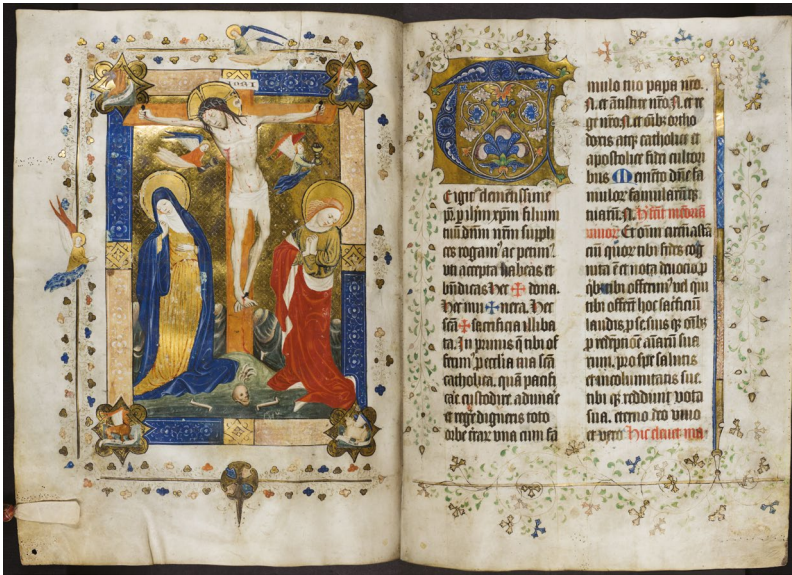 T
Eigit᾽ clemẽtissime
pr̃. p ihm̃ xp̃m filium
tuũ dñm nr̃m suppli
ces rogam᾽ ac petim᾽.
vti accepta habeas et
bñdicas hec ✠ dona.
Hec mu✠nera. Hec
scã ✠ sacrificia illiba
ta. In primis q̃ tibi of
ferim᾽ p ecclia tua scã
catholica. quã pacifi
care custodire. adunare
et regere digneris toto
orbe terrar᾽ vna cum fa
mulo tuo papa nr̃o.
N. et ãtistite nr̃o N. et re
ge nr̃o N. et oĩbꝫ ortho
doxis atqꝫ catholice et
apostolice fidei cultori
bus Memẽto dñe fa
mulor᾽ famularũqꝫ
tuarũ. N. memoria
viuor᾽ Et oĩm circũastã
tiũ quor᾽ tibi fides cog
nita ẽ et nota deuocio. p
qĩbꝫ tibi offerim᾽ vel qui
tibi offerũt hoc sacficiũ
laudis. p se suis qꝫ oĩbꝫ
p redẽptiõe aĩarũ sua
rum. pro spe salutis
et incolumitatis sue.
tibi qꝫ reddunt vota
sua. eterno deo viuo
et vero Hic eleuet ma